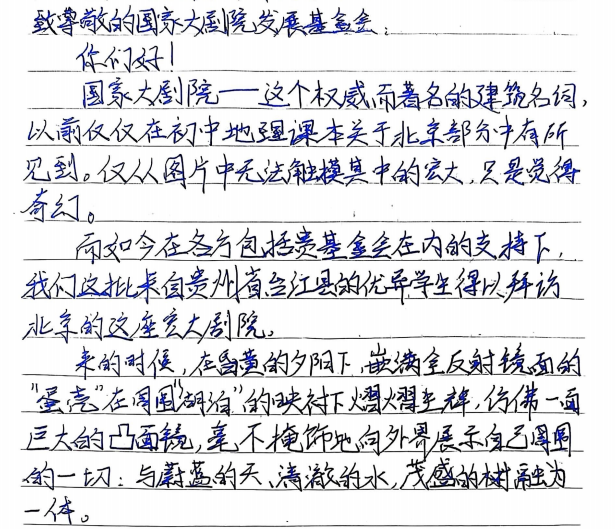 致尊敬的国家大剧院发展基金会:
你们好!
国家大剧院——这个权威而著名的建筑名词,
以前仅仅在初中地理课本关于北京部分中有所
见到。仅从图片中无法触摸其中的宏大,只是觉得
奇幻。
而如今在各方包括贵基金会在内的支持下,
我们这批来自贵州省台江县的优异学生得以拜访
北京的这座宏大剧院。
来的时候,在昏黄的夕阳下,嵌满全反射镜面的
“蛋壳”在周围“湖泊”的映衬下熠熠生辉,仿佛一面
巨大的凸面镜,毫不掩饰地向外界展示自己周围
的一切:与蔚蓝的天,清澈的水,茂盛的树融为
一体。